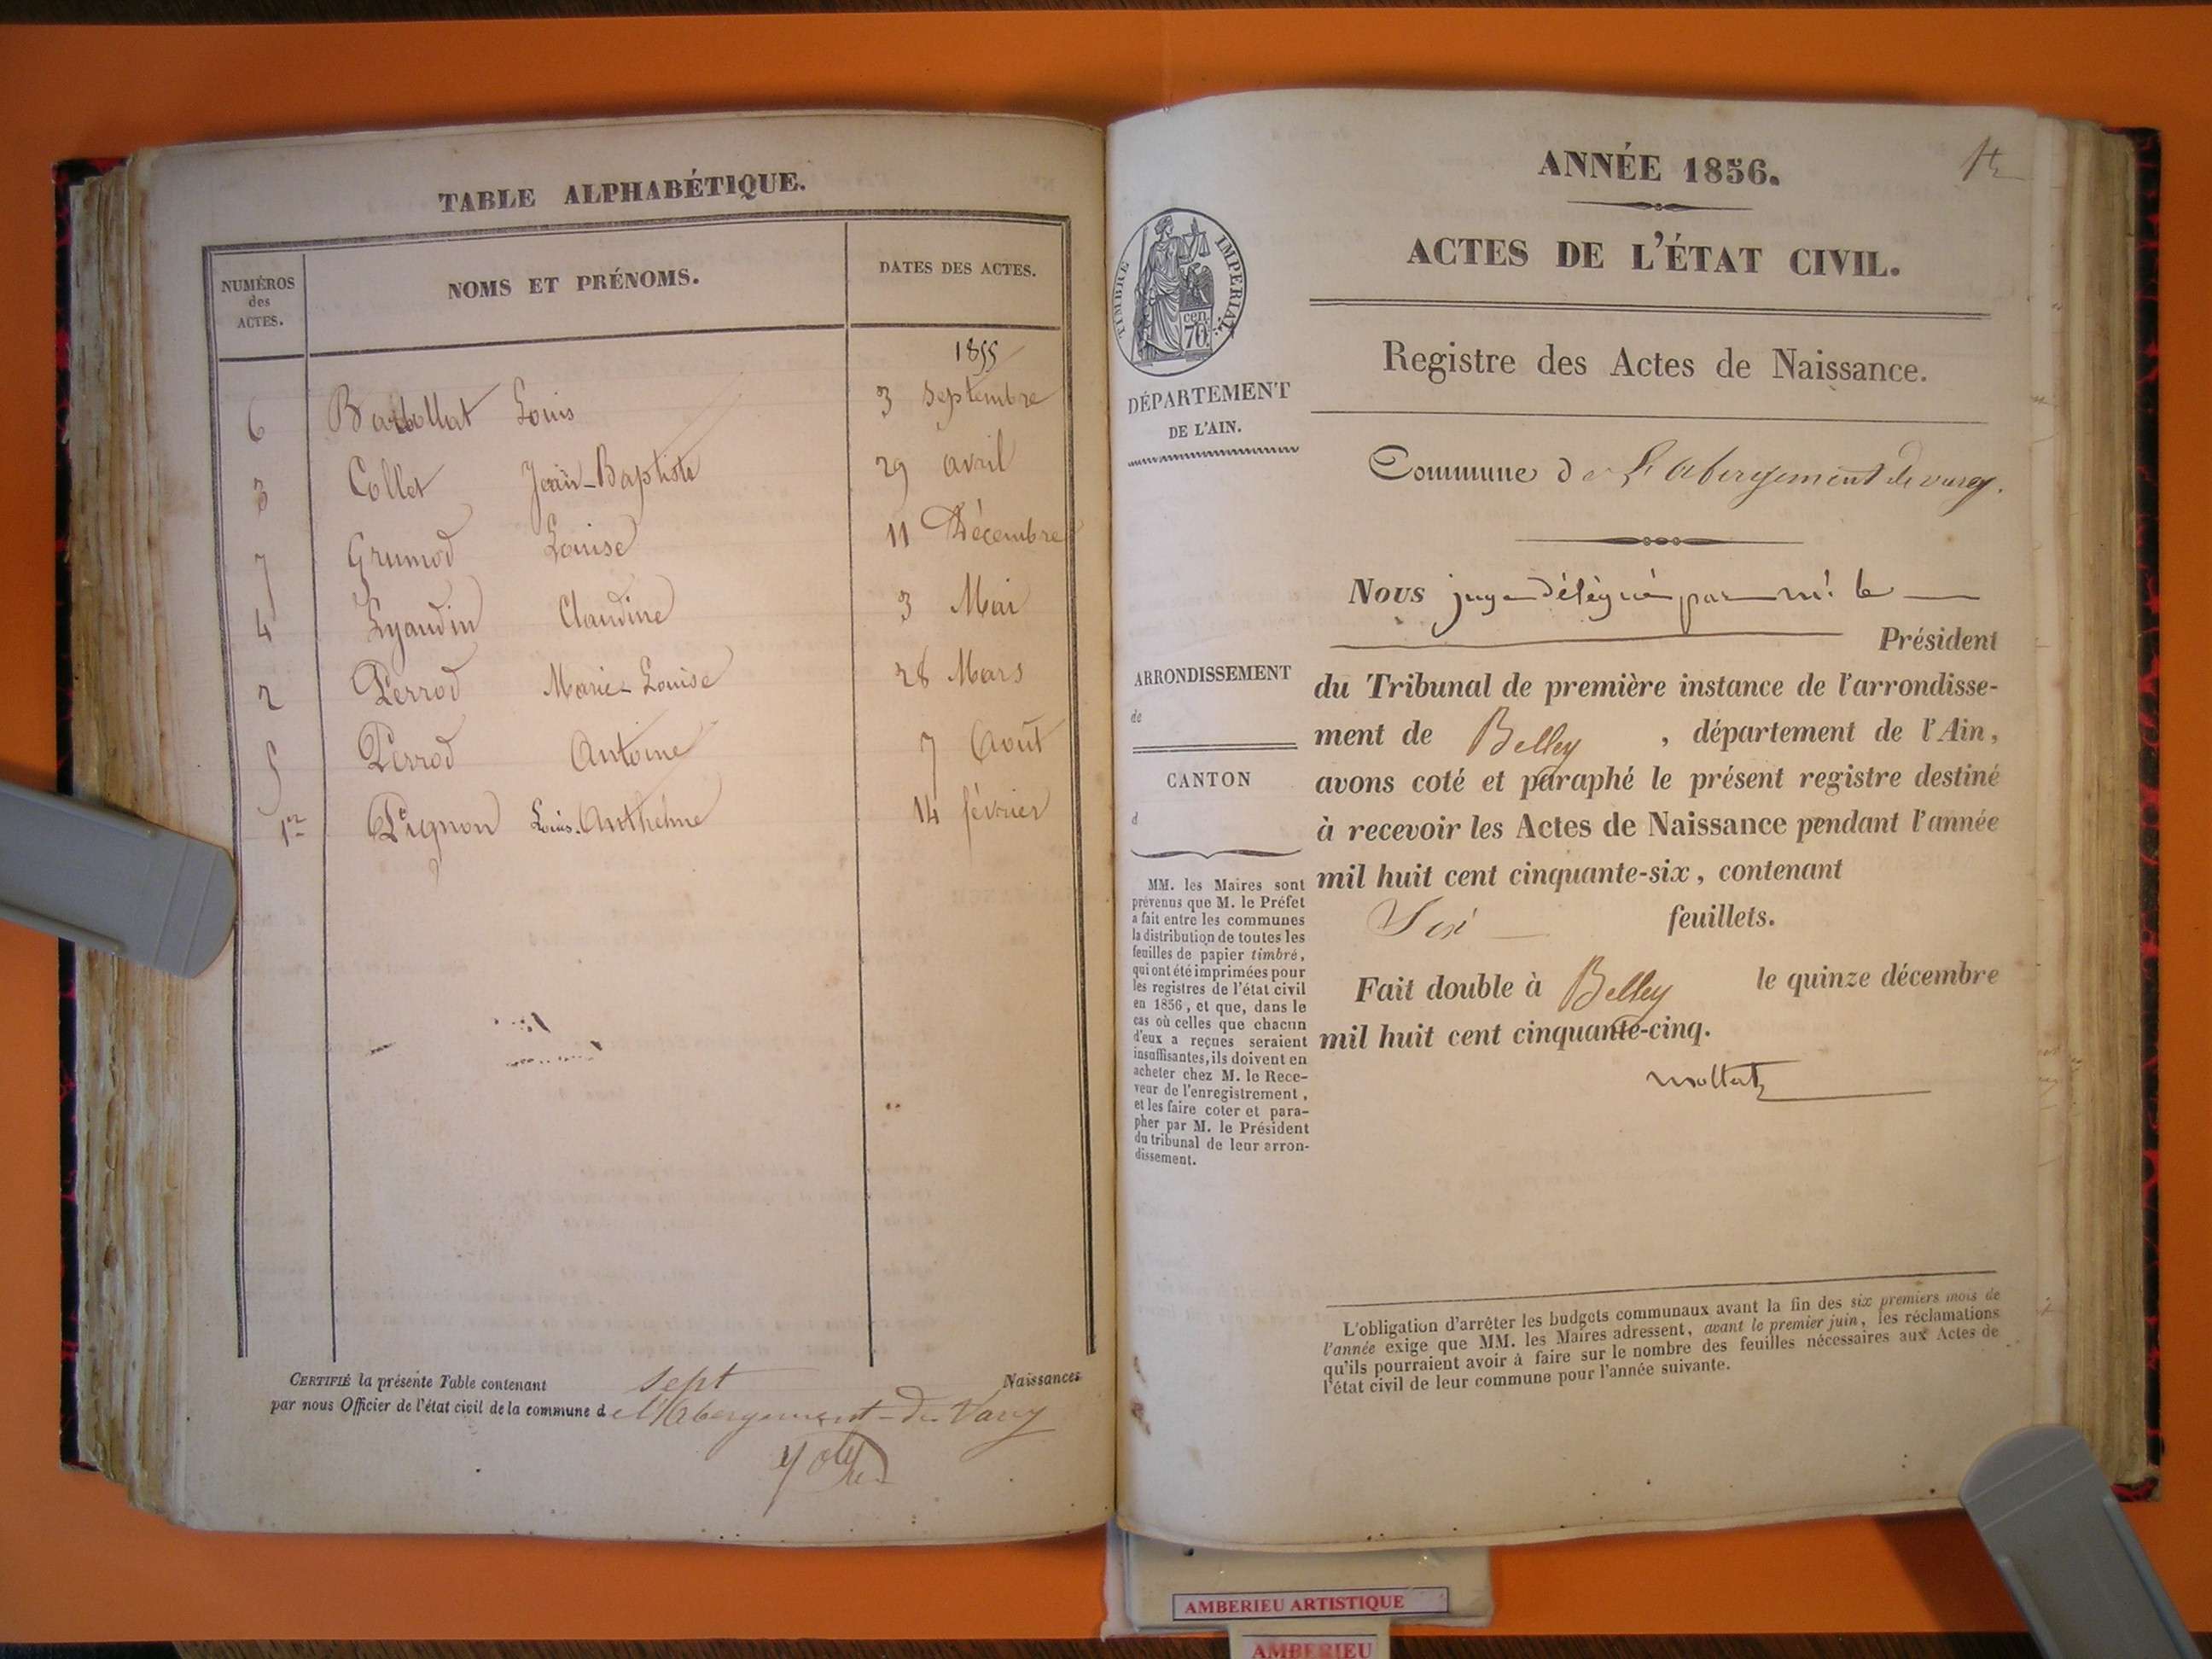 TABLE ALPHABÉTIQUE.
NUMÉROS des ACTES.
NOMS ET PRÉNOMS.
DATES DES ACTES.
1855
6 Louis 3 Septembre
3 Collet Jean-Baptiste 29 avril
7 Grumod Louise 11 Décembre
4 Lyaudin Claudine 3 Mai
2 Perrod Marie-Louise 28 Mars
5 Perrod Antoine 7 Août
1er Pignon Louis-Anthelme 14 février
CERTIFIÉ la présente Table contenant sept Naissances
par nous Officier de l'état civil de la commune de l'Abergement-de-Varey
ANNÉE 1856.
ACTES DE L'ÉTAT CIVIL.
TIMBRE IMPERIAL
cen. 70
DÉPARTEMENT
DE L'AIN.
Registre des Actes de Naissance.
Commune de L'abergement de varey.
Nous juge délégué par mr. le
Président
du Tribunal de première instance de l'arrondisse-
ment de Belley, département de l'Ain,
avons coté et paraphé le présent registre destiné
à recevoir les Actes de Naissance pendant l'année
mil huit cent cinquante-six, contenant
Six feuillets.
Fait double à Belley le quinze décembre
mil huit cent cinquante-cinq.
ARRONDISSEMENT
de
CANTON
d
MM. les Maires sont
prévenus que M. le Préfet
a fait entre les communes
la distribution de toutes les
feuilles de papier timbré,
qui ont été imprimées pour
les registres de l'état civil
en 1856, et que, dans le
cas où celles que chacun
d'eux a reçues seraient
insuffisantes, ils doivent en
acheter chez M. le Rece-
veur de l'enregistrement,
et les faire coter et para-
pher par M. le Président
du tribunal de leur arron-
dissement.
L'obligation d'arrêter les budgets communaux avant la fin des six premiers mois de
l'année exige que MM. les Maires adressent, avant le premier juin, les réclamations
qu'ils pourraient avoir à faire sur le nombre des feuilles nécessaires aux Actes de
l'état civil de leur commune pour l'année suivante.
AMBERIEU ARTISTIQUE
AMBERIEU